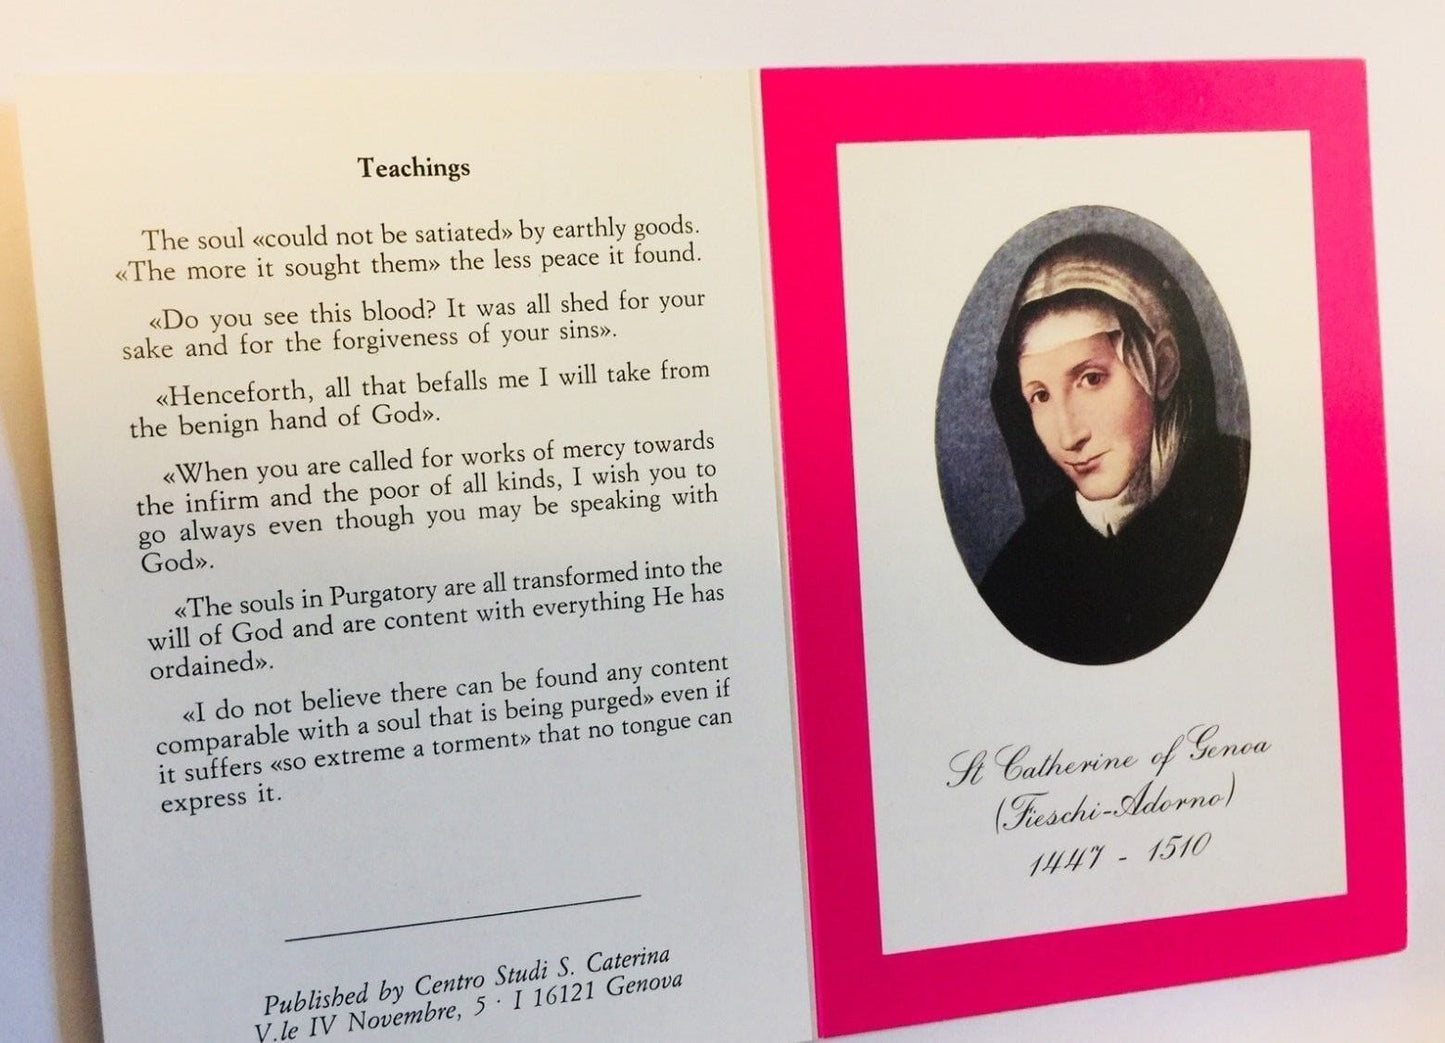 Teachings
The soul «could not be satiated» by earthly goods.
«The more it sought them» the less peace it found.
«Do you see this blood? It was all shed for your
sake and for the forgiveness of your sins».
«Henceforth, all that befalls me I will take from
the benign hand of God».
«When you are called for works of mercy towards
the infirm and the poor of all kinds, I wish you to
go always even though you may be speaking with
God».
«The souls in Purgatory are all transformed into the
will of God and are content with everything He has
ordained».
«I do not believe there can be found any content
comparable with a soul that is being purged» even if
it suffers «so extreme a torment» that no tongue can
express it.
Published by Centro Studi S. Caterina
V.le IV Novembre, 5 · I 16121 Genova
St Catherine of Genoa
(Fieschi-Adorno)
1447 - 1510